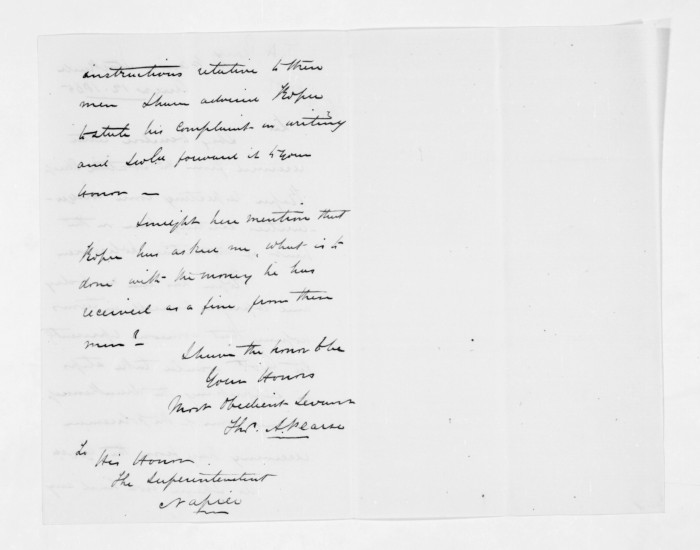 instructions relative to these
men I have advised Kopu
to state his complaint in writing
and I wo'd forward it to your
Honor —
I might here mention that
Kopu has asked me, what is to
done with the money he has
received as a fine from these
men? —
I have the honor to be
Your Honors
Most Obedient Servant
Tho's. A. Pearse
To
His Honor
The Superintendent
Napier